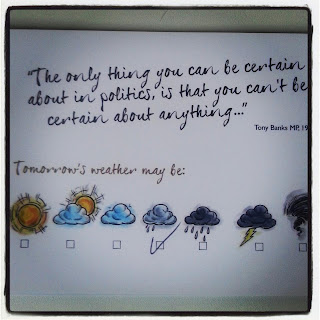 "The only thing you can be certain
about in politics, is that you can't be
certain about anything..."
Tony Banks MP,
Tomorrow's weather may be: